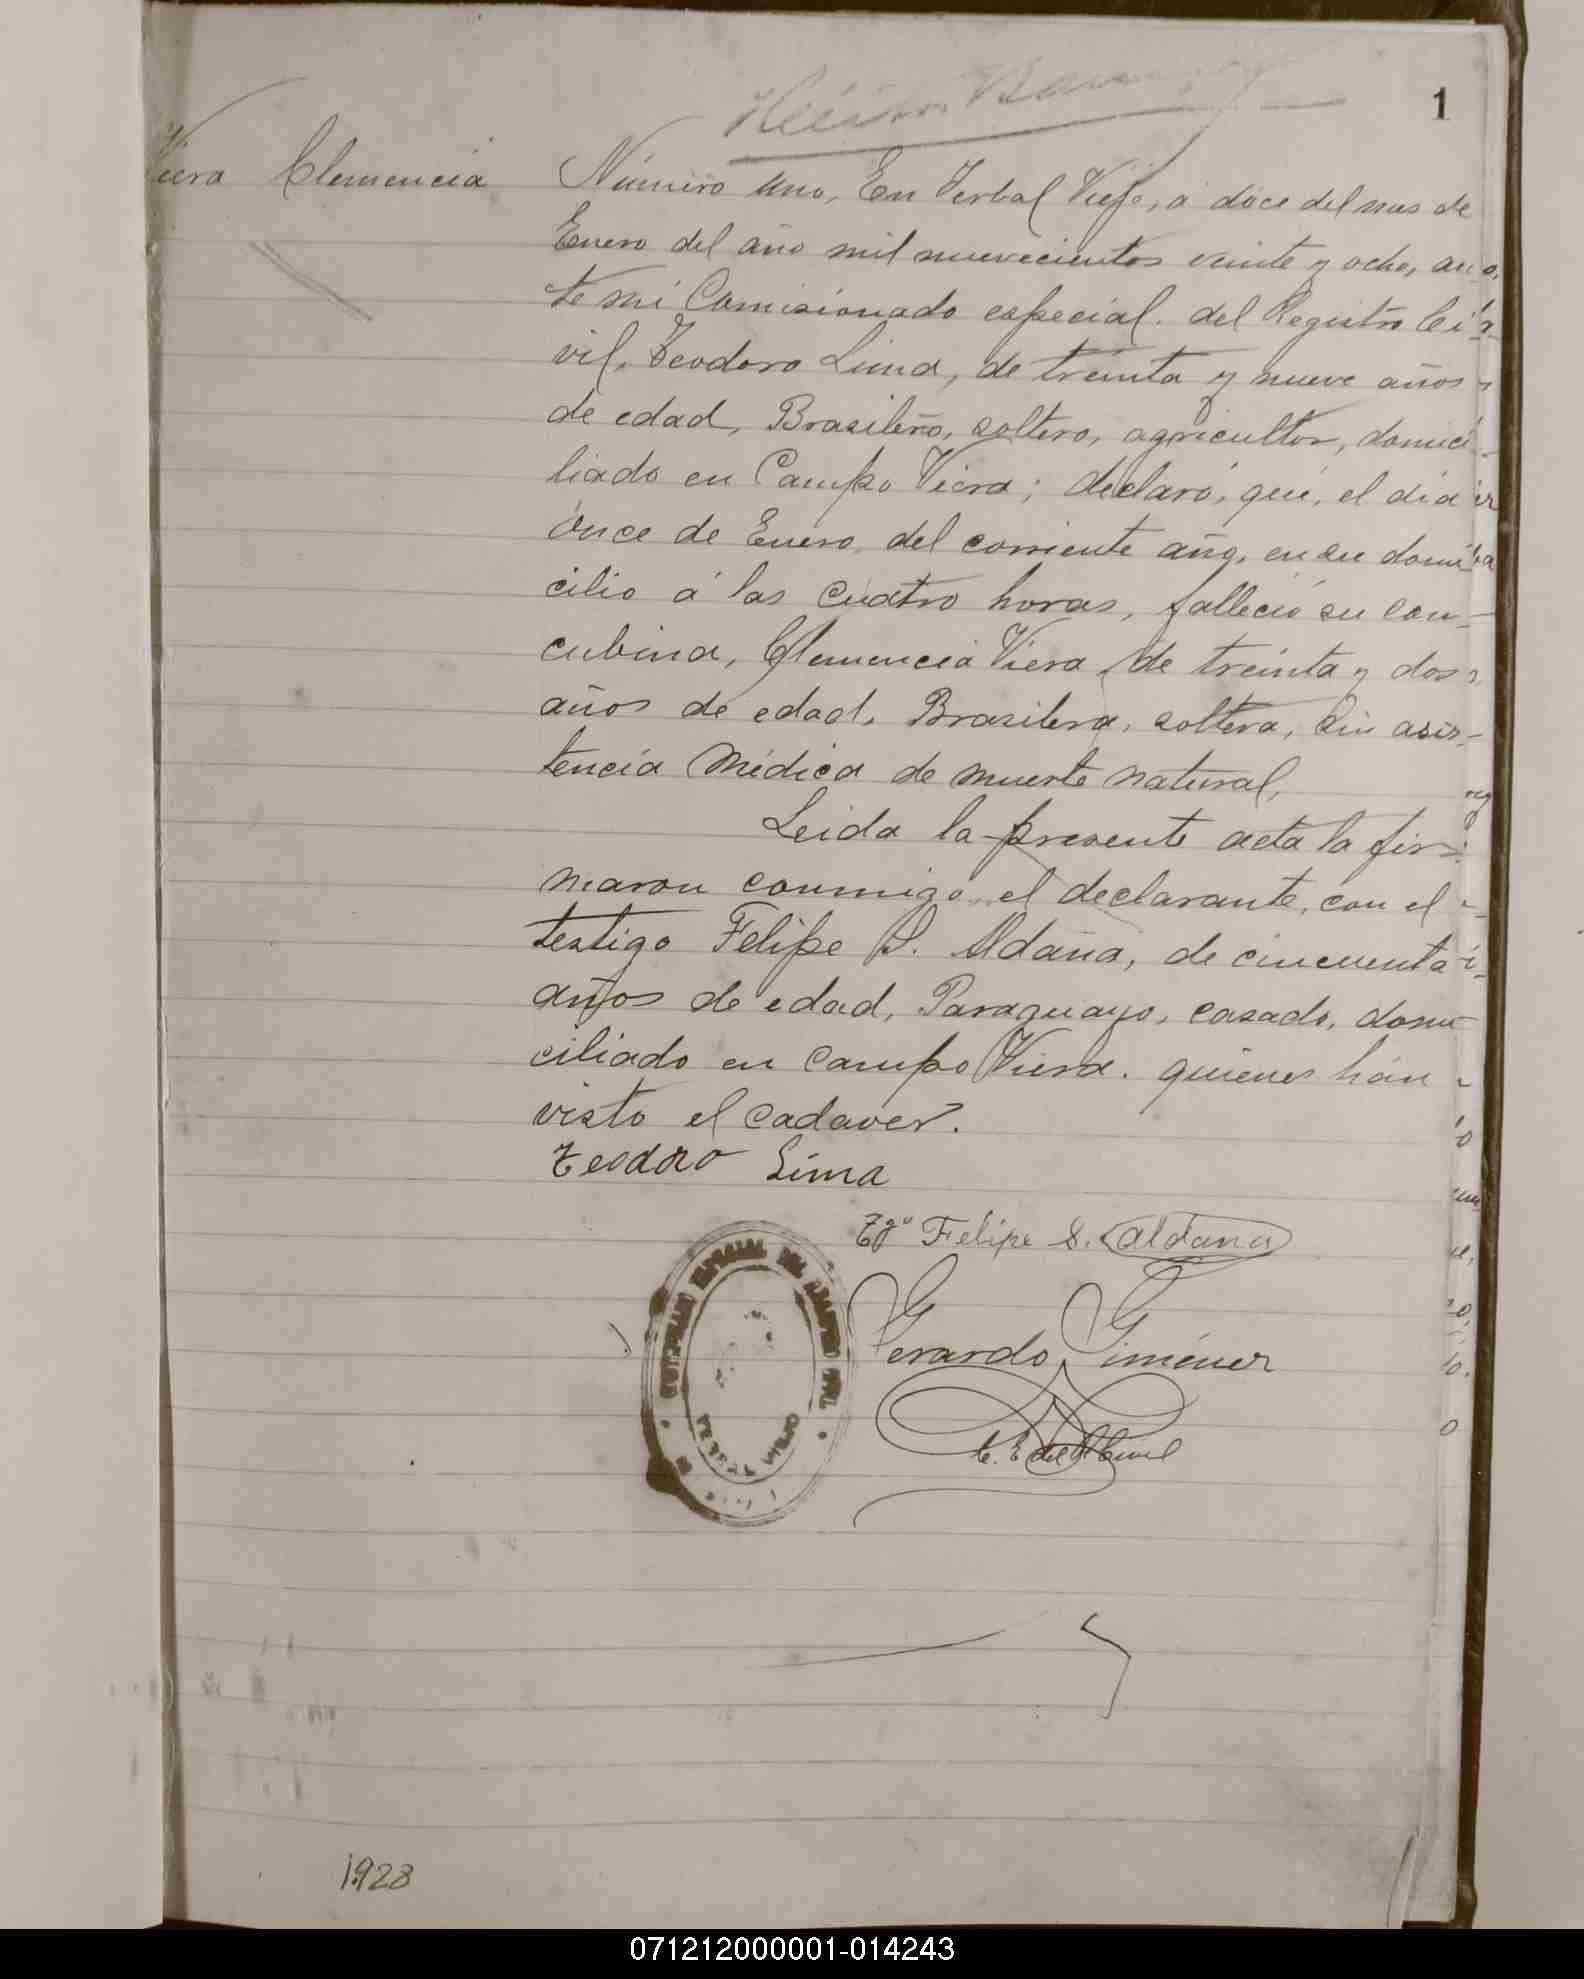 1
Viera Clemencia
Número uno, En Yerbal Viejo, á doce del mes de
Enero del año mil nuevecientos veinte y ocho, an
te mi Comisionado especial. del Registro Ci
vil, Teodoro Lima, de treinta y nueve años
de edad, Brasileño, soltero, agricultor, domici
liado en Campo Viera; declaró, que, el dia
once de Enero, del corriente año, en su domi
cilio á las cuatro horas, falleció su con-
cubina, Clemencia Viera, de treinta y dos
años de edad, Brasilera, soltera, sin asis-
tencia médica de muerte natural,
Leida la presente acta la fir
maron conmigo, el declarante, con el
testigo Felipe S. Aldaña, de cincuenta
años de edad, Paraguayo, casado, domi
ciliado en Campo Viera. quienes hán
visto el cadaver.
Teodoro Lima
Tgo Felipe S. Aldana
Gerardo Giménez
C. E del R Civil
COMISARIO ESPECIAL DEL REGISTRO CIVIL
YERBAL VIEJO
1928
071212000001-014243